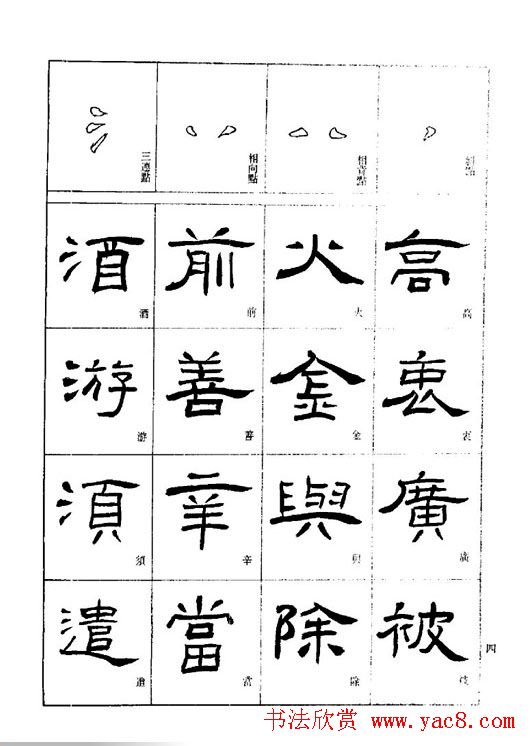 斜點
高
高
衷
衷
廣
廣
被
被
相背點
火
火
金
金
與
與
除
除
相向點
前
前
善
善
辛
辛
當
當
三連點
酒
酒
游
游
須
須
遣
遣
四
书法欣赏 www.yac8.com